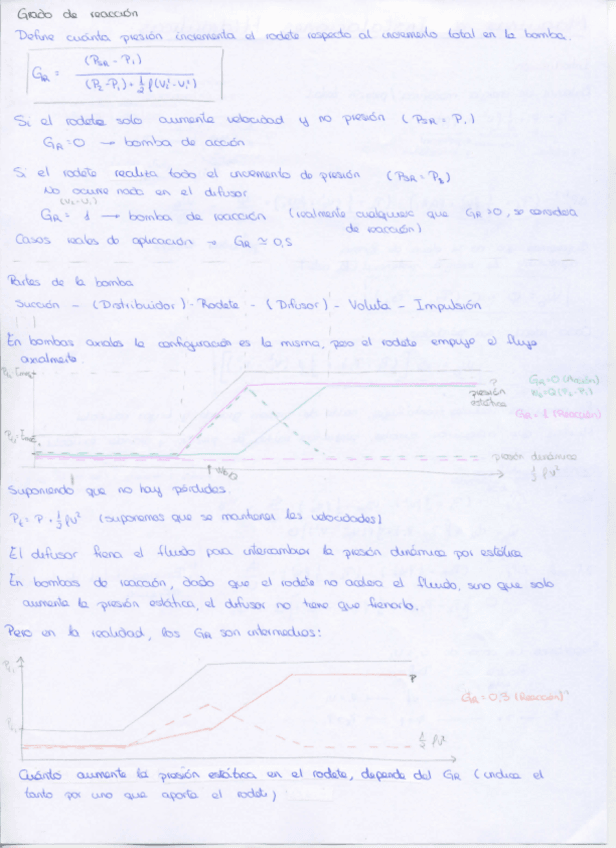 Grado de reacción
Define cuánta presión incrementa el rodete respecto al incremento total en la bomba.
GR = (PSR - P1) / (P2-P1)+½ρ(V2²-V1²)
Si el rodete solo aumenta velocidad y no presión (PSR = P1)
GR=0 → bomba de acción
Si el rodete realiza todo el incremento de presión (PSR = P2)
No ocurre nada en el difusor
GR = 1 → bomba de reacción (realmente cualquiera que GR>0, se considera
de reacción)
Casos reales de aplicación → GR ≃ 0,5
Partes de la bomba
Succión - (Distribuidor) - Rodete - (Difusor) - Voluta - Impulsión
En bombas axiales la configuración es la misma, pero el rodete empuja el flujo
axialmente.
P
presión
estática
GR=0 (Acción)
GR=1 (Reacción)
presión dinámica
½ρv²
Suponiendo que no hay pérdidas.
Pt = P + ½ρv² (suponemos que se mantienen las velocidades)
El difusor frena el fluido para intercambiar la presión dinámica por estática
En bombas de reacción, dado que el rodete no acelera el fluido, sino que solo
aumenta la presión estática, el difusor no tiene que frenarlo.
Pero en la realidad, los GR son intermedios:
P
GR=0,3 (Reacción)
½ρv²
Cuánto aumenta la presión estática en el rodete, depende del GR (indica el
tanto por uno que aporta el rodete)